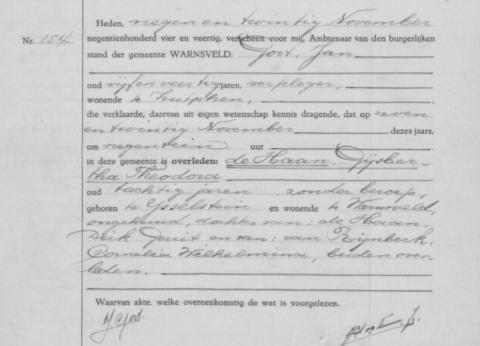 Heden, negen en twintig November
Nr. 154. negentienhonderd vier en veertig, verscheen voor mij, Ambtenaar van den burgerlijken
stand der gemeente WARNSVELD: Gort, Jan
oud vijf en veertig jaren, verpleger,
wonende te Zutphen,
die verklaarde, daarvan uit eigen wetenschap kennis dragende, dat op zeven
en twintig November dezes jaars,
om negentien uur
in deze gemeente is overleden: de Haan, Gijsber-
tha Theodora
oud tachtig jaren zonder beroep,
geboren te IJsselstein en wonende te Warnsveld,
ongehuwd, dochter van: de Haan,
Dirk Gerrit en van: van Rijnberk,
Cornelia Wilhelmina, beiden over-
leden.
Waarvan akte, welke overeenkomstig de wet is voorgelezen.